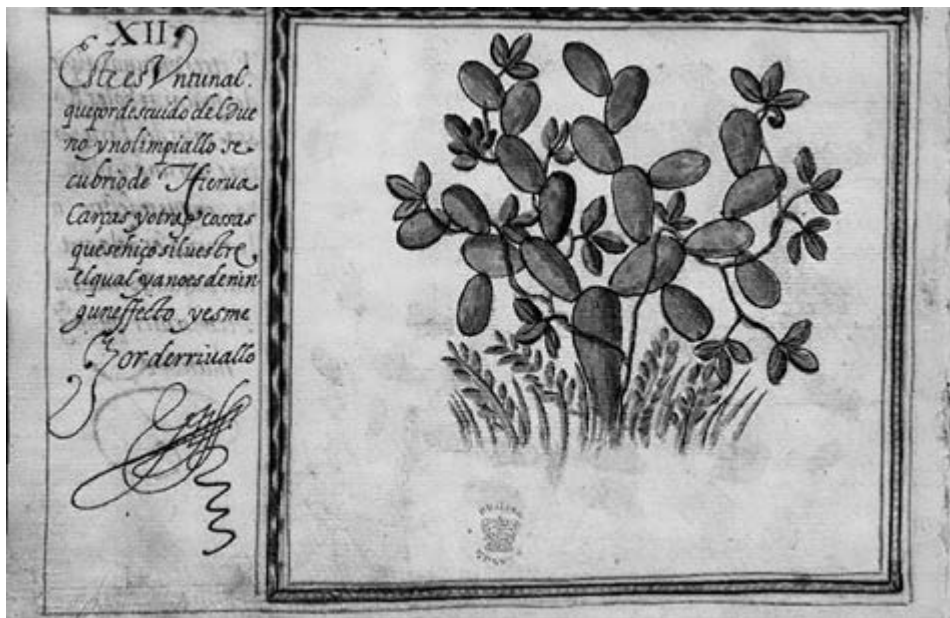 XII
Este es Vn tunal.
que por descuido del due
no y no limpiallo se
cubrio de Hierua
Carças y otras cossas
que se hiço siluestre
el qual ya no es de nin
gun effecto. y es me
Jor derriuallo